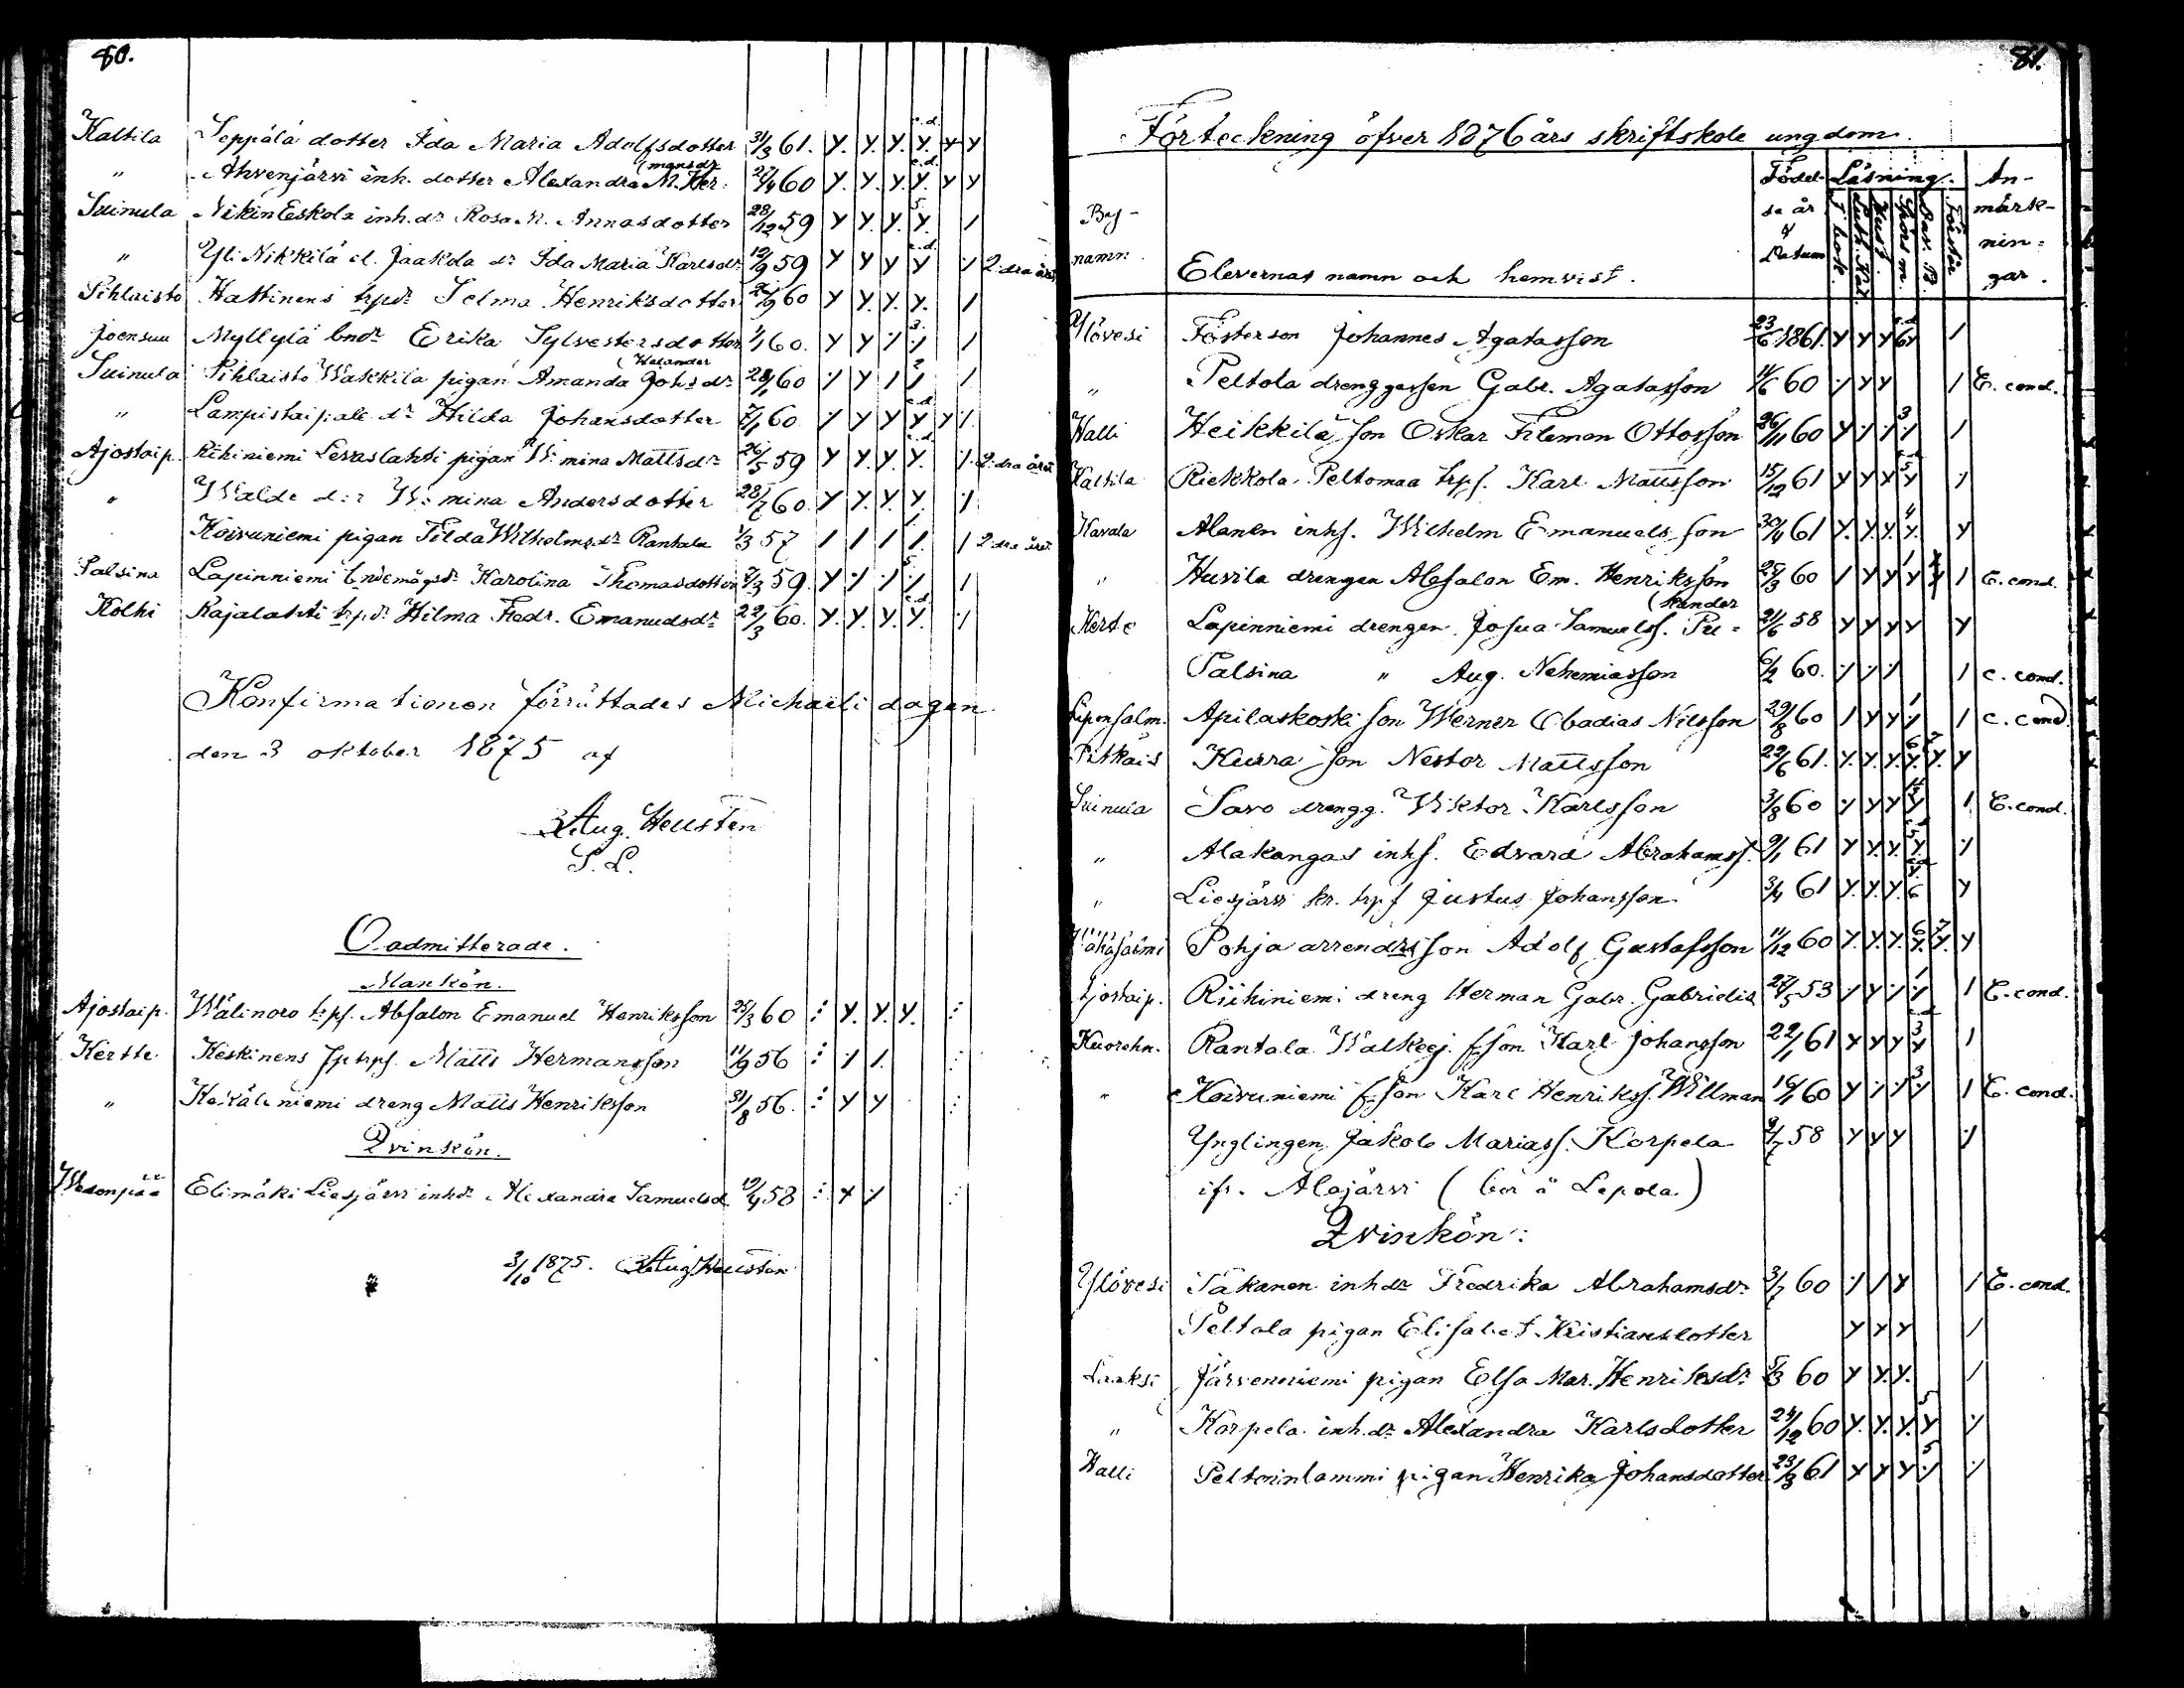 80.
Kaltila Seppälä dotter Ida Maria Adolfsdotter 31/3 61. Y. Y. Y. Y. Y Y
" Ahvenjärvi inh. dotter Alexandra M. Her= (mansdr 27/4 60 Y. Y. Y. Y. Y Y
Suinula Nikin Eskola inh. dr Rosa M. Annasdotter 28/12 59 Y Y. Y. Y. /
" Yli Nikkilä el. Jaakola dr Ida Maria Karlsdr 19/9 59 Y Y Y Y ·/ 2:dra året
Pihlaisto Hattinens trpdr Selma Henriksdotter 26/9 60 Y Y. Y. Y. /
Joensuu Myllylä bndr Erika Sylvestersdotter 1/1 60. Y Y ·/ ·/ /
Suinula Pihlaisto Wakkila pigan Amanda Johsdr (Helander 28/1 60 ·/ Y / / /
" Lampistaipale dr Hilda Johansdotter 7/1 60 ·/ Y Y Y Y ·/.
Ajostaip. Riihiniemi Levaslahti pigan W:mina Mattsdr 26/5 59 Y Y. Y. Y. ·/. 2:dra året
" Walde d:r W:mina Andersdotter 28/7 60. Y Y. Y. Y. ·/
Koivuniemi pigan Tilda Wilhelmsdr Rantala 1/3 57 / / / /. / 2 dra året
Palsina Lapinniemi bndemågsdr Karolina Thomasdotter 7/3 59. Y ·/ ·/ ·/ /
Kolhi Rajalahti trp.dr Hilma Fredr. Emanuelsdr 22/3 60. Y. Y. Y. Y. ·/
Konfirmationen förrättades Michaeli dagen
den 3 oktober 1875 af
Aug. Heusten
S. L.
Oadmitterade.
Mankön.
Ajostaip. Wälinoro trpf. Absalon Emanuel Henriksson 25/3 60 Y. Y. Y.
Kertte Keskinens Matts Hermansson 11/9 56 ·/ /.
" niemi dreng Matts Henriksson 31/8 56. Y Y
Qvinkön.
Elimäki Liesjärvi inhdr Alexandra Samuelsd. 19/4 58 Y ·/
3/10 1875. Aug Heusten
81.
Förteckning öfver 1876 års skriftskole ungdom.
By- namn. Elevernas namn och hemvist. Födel- se år & Datum Läsning. An- märk- nin= gar.
Ylövesi Fosterson Johannes Agatasson 23/6 1861. Y Y Y 6 /
" Peltola drenggossen Gabr. Agatasson 11/6 60 ·/ Y Y / E. cond.
Halli Heikkilä son Oskar Filemon Ottosson 26/11 60 Y ·/ ·/ ·/ /
Kaltila Riekkola-Peltomaa trpf. Karl Mattsson 15/12 61 Y Y Y Y ·/
Kavala Alanen inhf. Wilhelm Emanuelsson 30/4 61 Y. Y. Y. Y. Y
" Huvila drengen Absalon Em. Henriksson 25/3 60 / Y Y Y Y / E. cond.
Kerte Lapinniemi drengen Josua Samuelsf. Pu= (kander 21/6 58 Y Y Y Y Y
Palsina " Aug. Nehemiasson 6/2 60. ·/ ·/ ·/ / C. cond.
Apilaskoski son Werner Obadias Nilsson 29/8 60 / Y Y ·/ / C. cond
Pitkais Kurra son Nestor Mattsson 22/6 61. Y. Y. Y. Y. Y. Y
Suinula Savo drengg. Wiktor Karlsson 3/8 60 ·/ Y Y Y / E. cond.
" Alakangas inhf. Edvard Abrahamsf. 9/1 61 Y Y. Y. Y. ·/
" Liesjärvi kr. trpf Justus Johansson 3/4 61 Y. Y. Y. 6 Y
Pohja arrendrsson Adolf Gustafsson 11/12 60 Y. Y. Y. Y. Y. Y
Ajostaip. Riihiniemi dreng Herman Gabr. Gabrielss 27/5 53 ·/ Y ·/ ·/ / E. cond.
Kuorehn. Rantala Walkeej. f.son Karl Johansson 22/1 61 Y Y Y Y /
" Koivuniemi f.son Karl Henriksf. Willman 16/1 60 Y ·/ ·/ ·/ / E. cond.
Ynglingen Jakob Mariasf. Korpela 9/7 58 Y Y Y ·/
ifr. Alajärvi (bor å Lepola.)
Qvinkön:
Ylövesi Säkanen inhdr Fredrika Abrahamsdr 3/7 60 ·/ / Y / E. cond.
Peltola pigan Elisabet Kristiansdotter Y Y Y /
Laaksi Järvenniemi pigan Elsa Mar. Henriksdr 5/3 60 Y Y. Y. /
" Korpela inh.dr Alexandra Karlsdotter 24/12 60 Y. Y. Y. Y ·/
Halli Peltoninlammi pigan Henrika Johansdotter 23/3 61 Y Y Y ·/ ·/